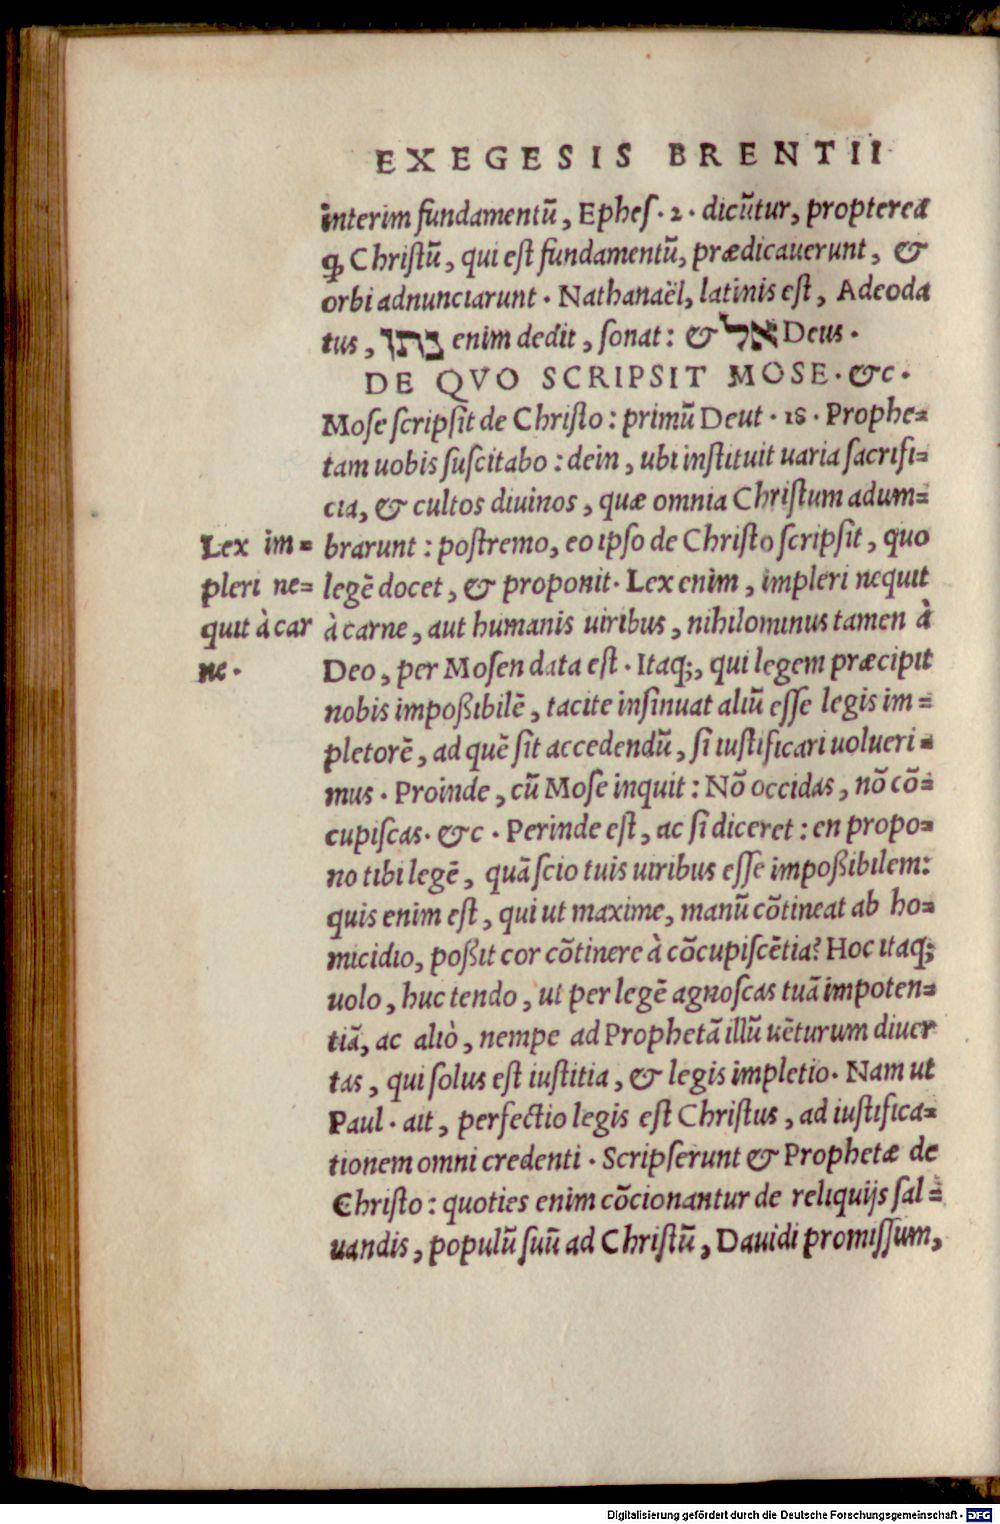 EXEGESIS BRENTII
interim fundamentũ, Ephes. 2. dicũtur, propterea
ꝙ Christũ, qui est fundamentũ, prædicauerunt, &
orbi adnunciarunt. Nathanaël, latinis est, Adeoda
tus, נתן enim dedit, sonat: & אל Deus.
DE QVO SCRIPSIT MOSE. &c.
Mose scripsit de Christo: primũ Deut. 18. Prophe=
tam uobis suscitabo: dein, ubi instituit uaria sacrifi=
cia, & cultos diuinos, quæ omnia Christum adum=
brarunt: postremo, eo ipso de Christo scripsit, quo
legẽ docet, & proponit. Lex enim, impleri nequit
à carne, aut humanis uiribus, nihilominus tamen à
Deo, per Mosen data est. Itaq;, qui legem præcipit
nobis impoßibilẽ, tacite insinuat aliũ esse legis im=
pletorẽ, ad quẽ sit accedendũ, si iustificari uolueri=
mus. Proinde, cũ Mose inquit: Nõ occidas, nõ cõ=
cupiscas. &c. Perinde est, ac si diceret: en propo=
no tibi legẽ, quã scio tuis uiribus esse impoßibilem:
quis enim est, qui ut maxime, manũ cõtineat ab ho=
micidio, poßit cor cõtinere à cõcupiscẽtia? Hoc itaq;
uolo, huc tendo, ut per legẽ agnoscas tuã impoten=
tiã, ac aliò, nempe ad Prophetã illũ uẽturum diuer
tas, qui solus est iustitia, & legis impletio. Nam ut
Paul. ait, perfectio legis est Christus, ad iustifica=
tionem omni credenti. Scripserunt & Prophetæ de
Christo: quoties enim cõcionantur de reliquijs sal=
uandis, populũ suũ ad Christũ, Dauidi promissum,
Lex im=
pleri ne=
quit à car
ne.
Digitalisierung gefördert durch die Deutsche Forschungsgemeinschaft - DFG